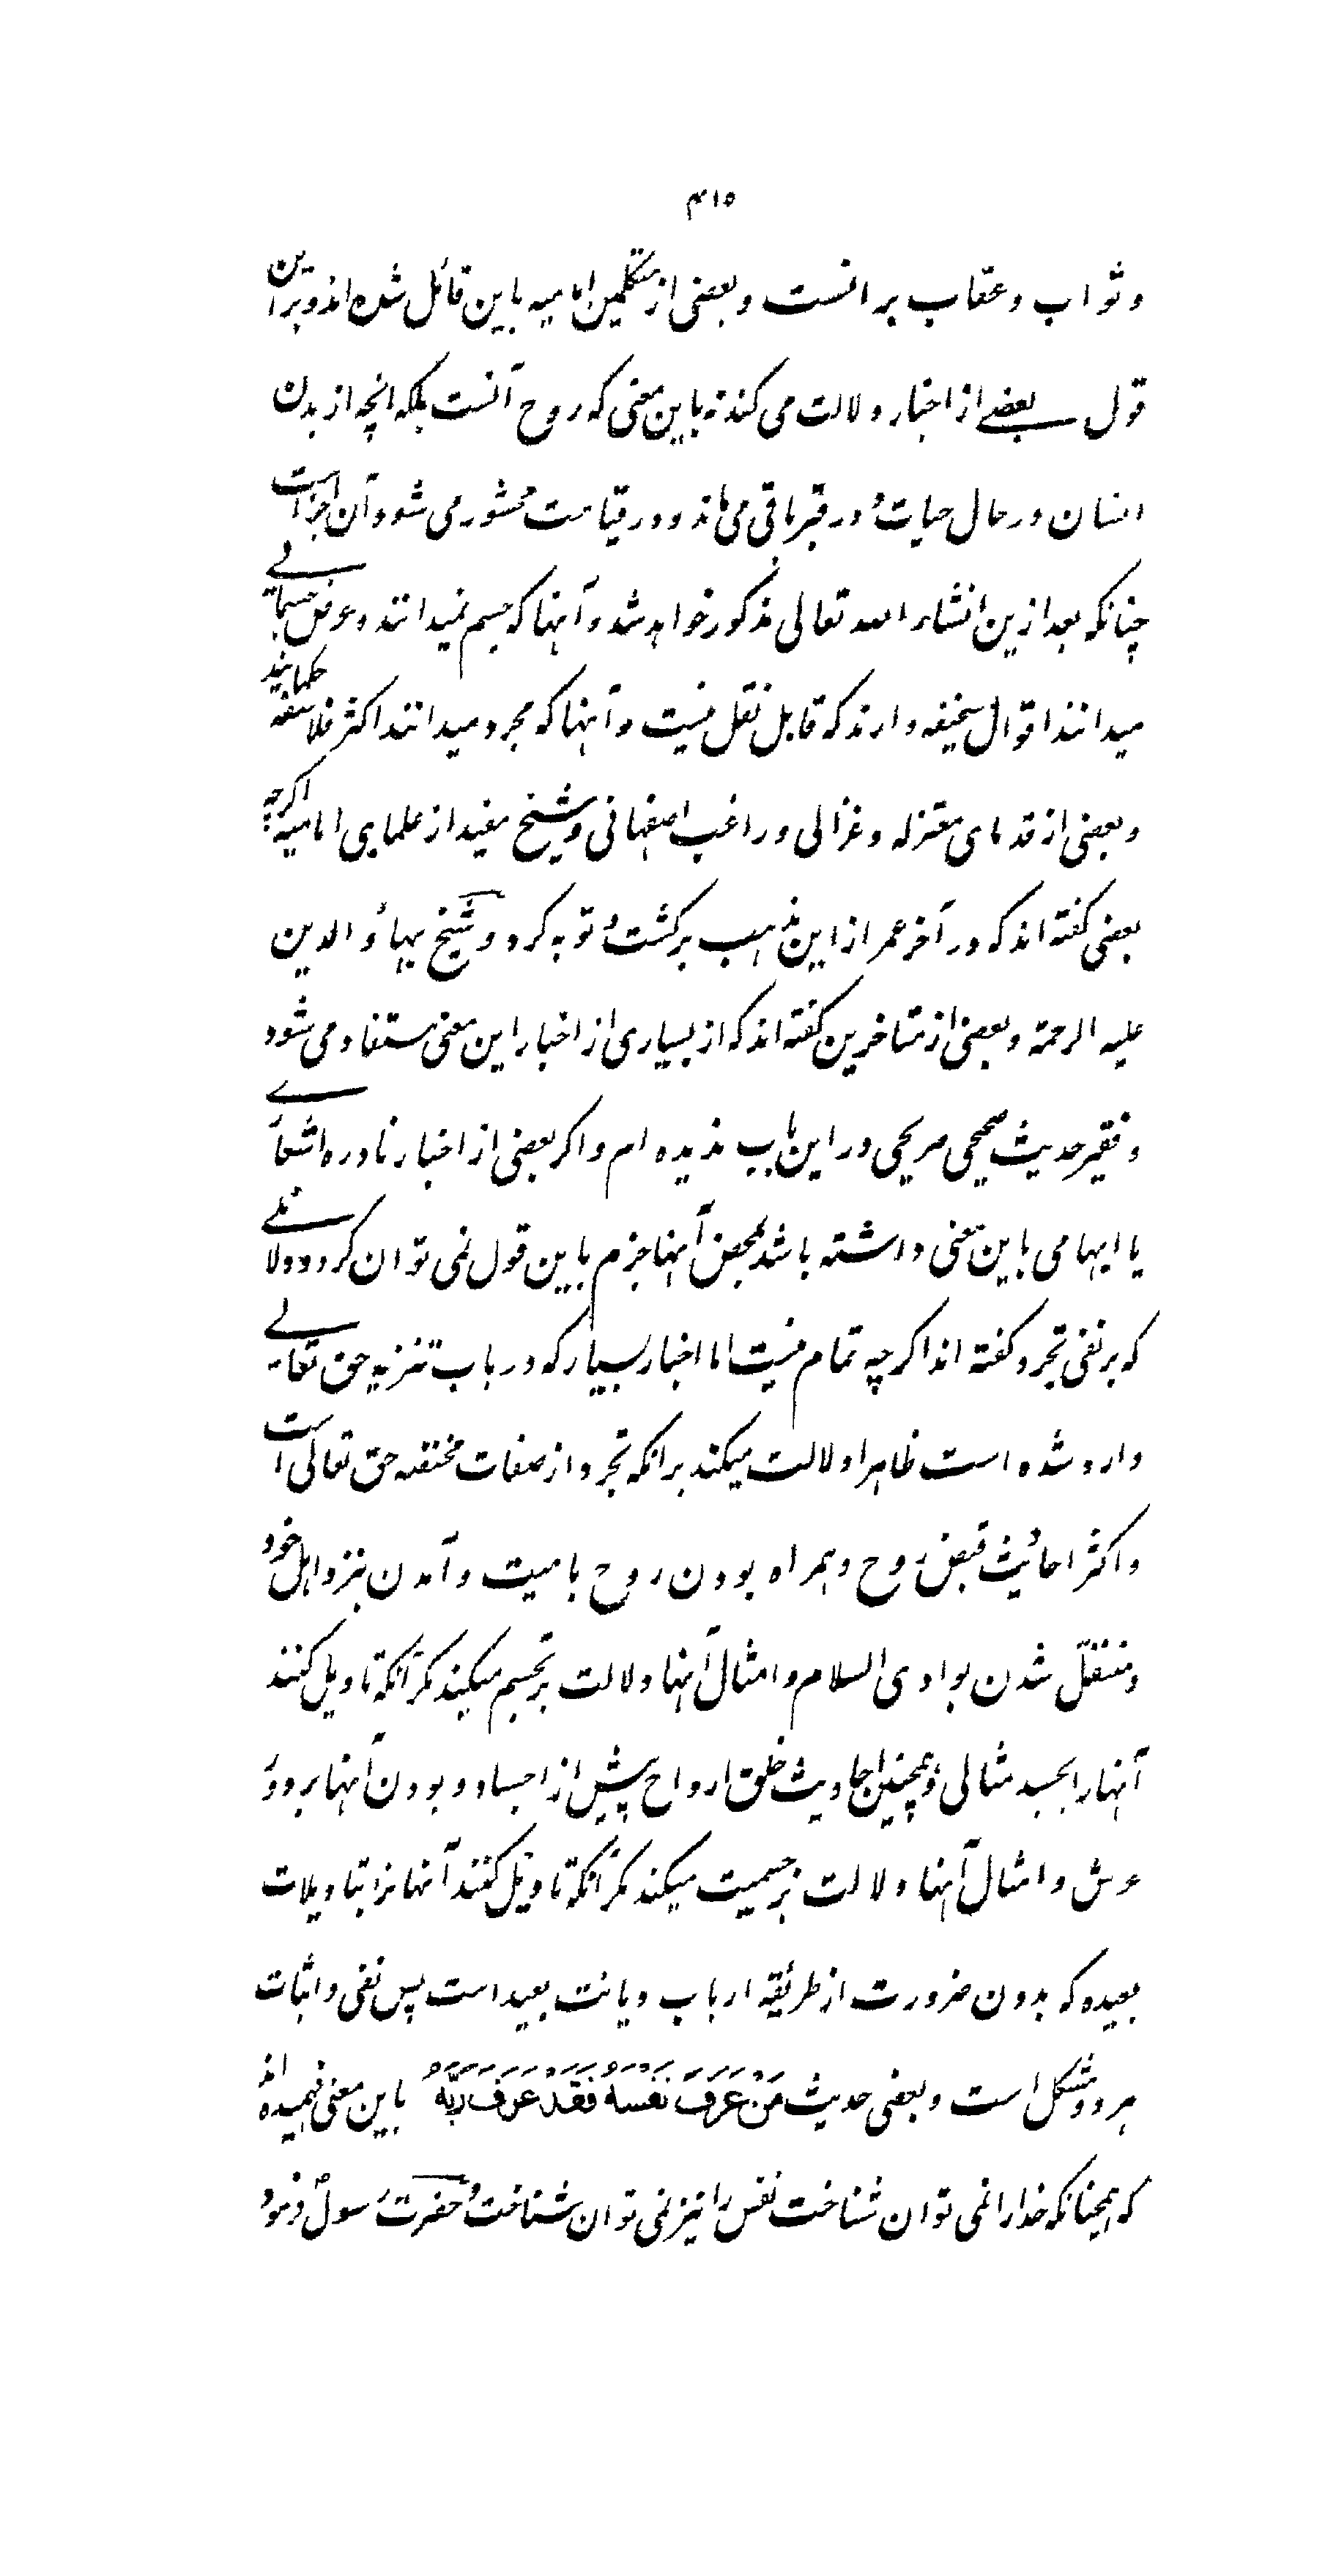 ۴۱۵
و ثواب و عقاب بر انست و بعضی از متکلمین امامیه باین قائل شده اند و بر این
قول بعضے از اخبار دلالت می کند نه باین معنی که روح آنست بلکه انچه از بدن
انسان در حال حیات و در قبر باقی می ماند و در قیامت محشور می شود آن اجزا است
چنانکه بعد ازین انشاء الله تعالی مذکور خواهد شد و آنها که جسم نمیدانند و عرض جسمانے
میدانند اقوال سخیفه دارند که قابل نقل نیست و آنها که مجرد میدانند اکثر فلاسفه حکمایند
و بعضی از قدمای معتزله و غزالی و راغب اصفهانی و شیخ مفید از علمای امامیه اکرچه
بعضی کفته اند که در آخر عمر از این مذهب برکشت و توبه کرد و شیخ بهاؤ الدین
علیه الرحمة و بعضی از متاخرین کفته اند که از بسیاری از اخبار این معنی مستفاد می شود
و فقیر حدیث صحیحی صریحی در این باب ندیده ام و اکر بعضی از اخبار نادره اشعارے
یا ایهامی باین معنی داشته باشد بمحض آنها جزم باین قول نمی توان کرد و دلائلے
که بر نفی تجرد کفته اند اکرچه تمام نیست اما اخبار بسیار که در باب تنزیه حق تعالے
وارد شده است ظاهرا دلالت میکند برانکه تجرد از صفات مختصه حق تعالی است
و اکثر احادیث قبض روح و همراه بودن روح با میت و آمدن بنزد اهل خود
و منتقل شدن بوادی السلام و امثال آنها دلالت بر تجسم میکند مکر آنکه تاویل کنند
آنها را بجسد مثالی و همچنین احادیث خلق ارواح پیش از اجساد و بودن آنها بر دور
عرش و امثال آنها دلالت بر جسمیت میکند مکر آنکه تاویل کنند آنها را بتاویلات
بعیده که بدون ضرورت از طریقه ارباب دیانت بعید است پس نفی و اثبات
هر دو مشکل است و بعضی حدیث مَنْ عَرَفَ نَفْسَهُ فَقَدْ عَرَفَ رَبَّهُ باین معنی فهمیده اند
که همچنانکه خدا را نمی توان شناخت نفس را نیز نمی توان شناخت و حضرت رسول فرمود